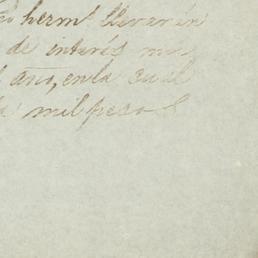 herm.ˢ llevarán
de interés
año, en la cual
mil pesos